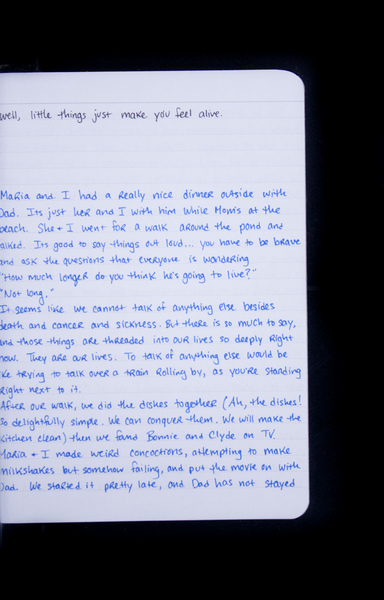 well, little things just make you feel alive.
Maria and I had a really nice dinner outside with
Dad. Its just her and I with him while Mom's at the
beach. She + I went for a walk around the pond and
talked. Its good to say things out loud... you have to be brave
and ask the questions that everyone is wondering
"How much longer do you think he's going to live?"
"Not long."
It seems like we cannot talk of anything else besides
death and cancer and sickness. But there is so much to say,
and those things are threaded into our lives so deeply right
now. They are our lives. To talk of anything else would be
like trying to talk over a train rolling by, as you're standing
right next to it.
After our walk, we did the dishes together (Ah, the dishes!
So delightfully simple. We can conquer them. We will make the
kitchen clean) then we found Bonnie and Clyde on TV.
Maria + I made weird concoctions, attempting to make
milkshakes but somehow failing, and put the movie on with
Dad. We started it pretty late, and Dad has not stayed